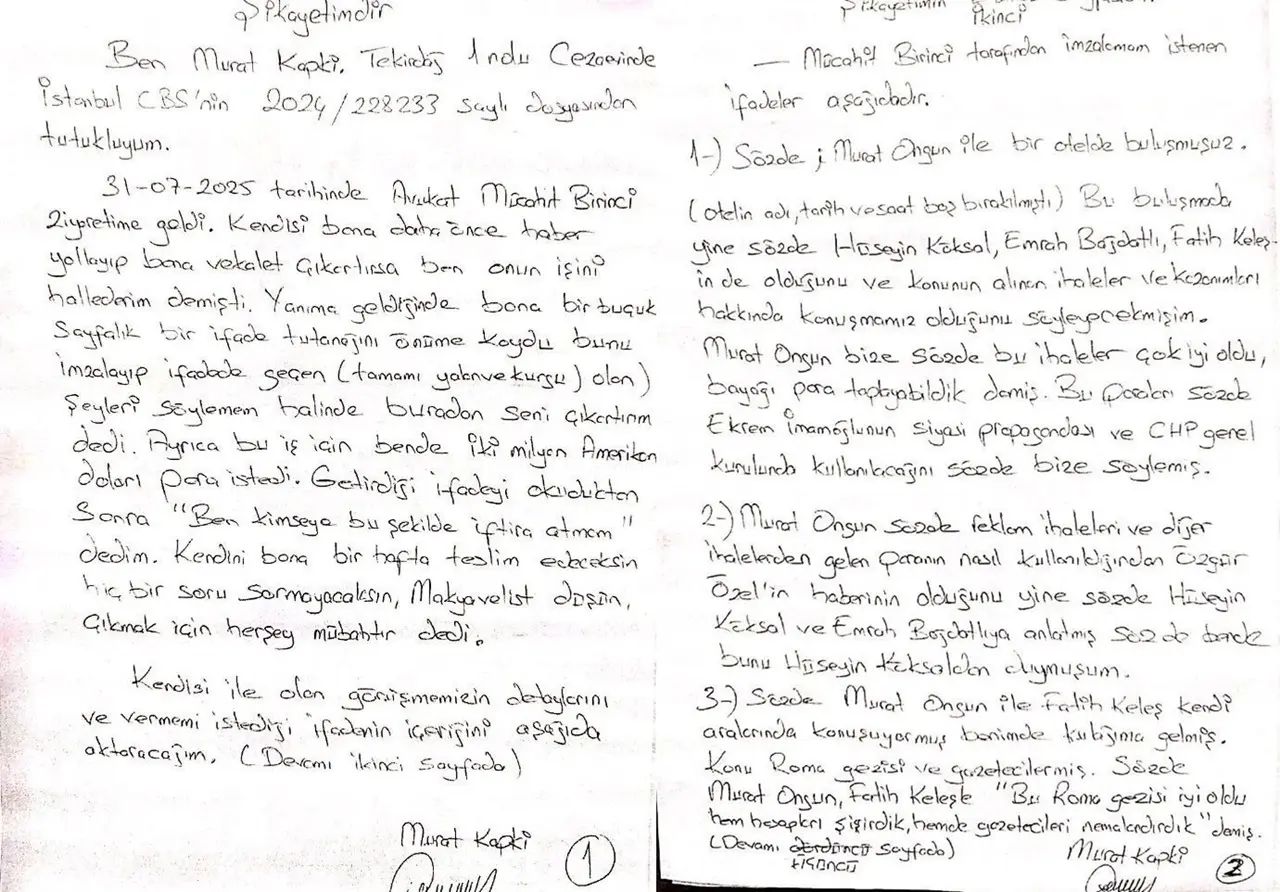 Şikayetimdir
Ben Murat Kapki. Tekirdağ 1 nolu Cezaevinde
İstanbul CBS'nin 2024/228233 sayılı dosyasından
tutukluyum.
31-07-2025 tarihinde Avukat Mücahit Birinci
Ziyaretime geldi. Kendisi bana daha önce haber
yollayıp bana vekalet çıkartırsa ben onun işini
hallederim demişti. Yanıma geldiğinde bana bir buçuk
Sayfalık bir ifade tutanağını önüme koydu bunu
imzalayıp ifadede geçen (tamamı yalan ve kurgu) olan)
şeyleri söylemem halinde buradan seni çıkartırım
dedi. Ayrıca bu iş için bende iki milyon Amerikan
doları para istedi. Getirdiği ifadeyi okuduktan
Sonra "Ben kimseye bu şekilde iftira atmam"
dedim. Kendini bana bir hafta teslim edeceksin
hiç bir soru sormayacaksın, Makyavelist düşün,
Çıkmak için herşey mübahtır dedi.
Kendisi ile olan görüşmemizin detaylarını
ve vermemi istediği ifadenin içeriğini aşağıda
aktaracağım. (Devamı ikinci sayfada)
Murat Kapki
1
Şikayetimin İkinci
— Mücahit Birinci tarafından imzalamam istenen
ifadeler aşağıdadır.
1-) Sözde ; Murat Ongun ile bir otelde buluşmuşuz.
(otelin adı, tarih ve saat boş bırakılmıştı) Bu buluşmada
yine sözde Hüseyin Köksal, Emrah Bağdatlı, Fatih Keleş-
in de olduğunu ve konunun alınan ihaleler ve kazanımları
hakkında konuşmamız olduğunu söyleyecekmişim.
Murat Ongun bize sözde bu ihaleler çok iyi oldu,
bayağı para toplayabildik demiş. Bu paraları sözde
Ekrem İmamoğlunun siyasi propagandası ve CHP genel
kurulunda kullanılacağını sözde bize söylemiş.
2-) Murat Ongun sözde reklam ihaleleri ve diğer
ihalelerden gelen paranın nasıl kullanıldığından Özgür
Özel'in haberinin olduğunu yine sözde Hüseyin
Köksal ve Emrah Bağdatlıya anlatmış sözde bende
bunu Hüseyin Köksaldan duymuşum.
3-) Sözde Murat Ongun ile Fatih Keleş kendi
aralarında konuşuyormuş benimde kulağıma gelmiş.
Konu Roma gezisi ve gazetecilermiş. Sözde
Murat Ongun, Fatih Keleşe "Bu Roma gezisi iyi oldu
hem hesapları şişirdik, hemde gazetecileri nemalandırdık" demiş.
(Devamı dördüncü sayfada)
üçüncü
Murat Kapki
2